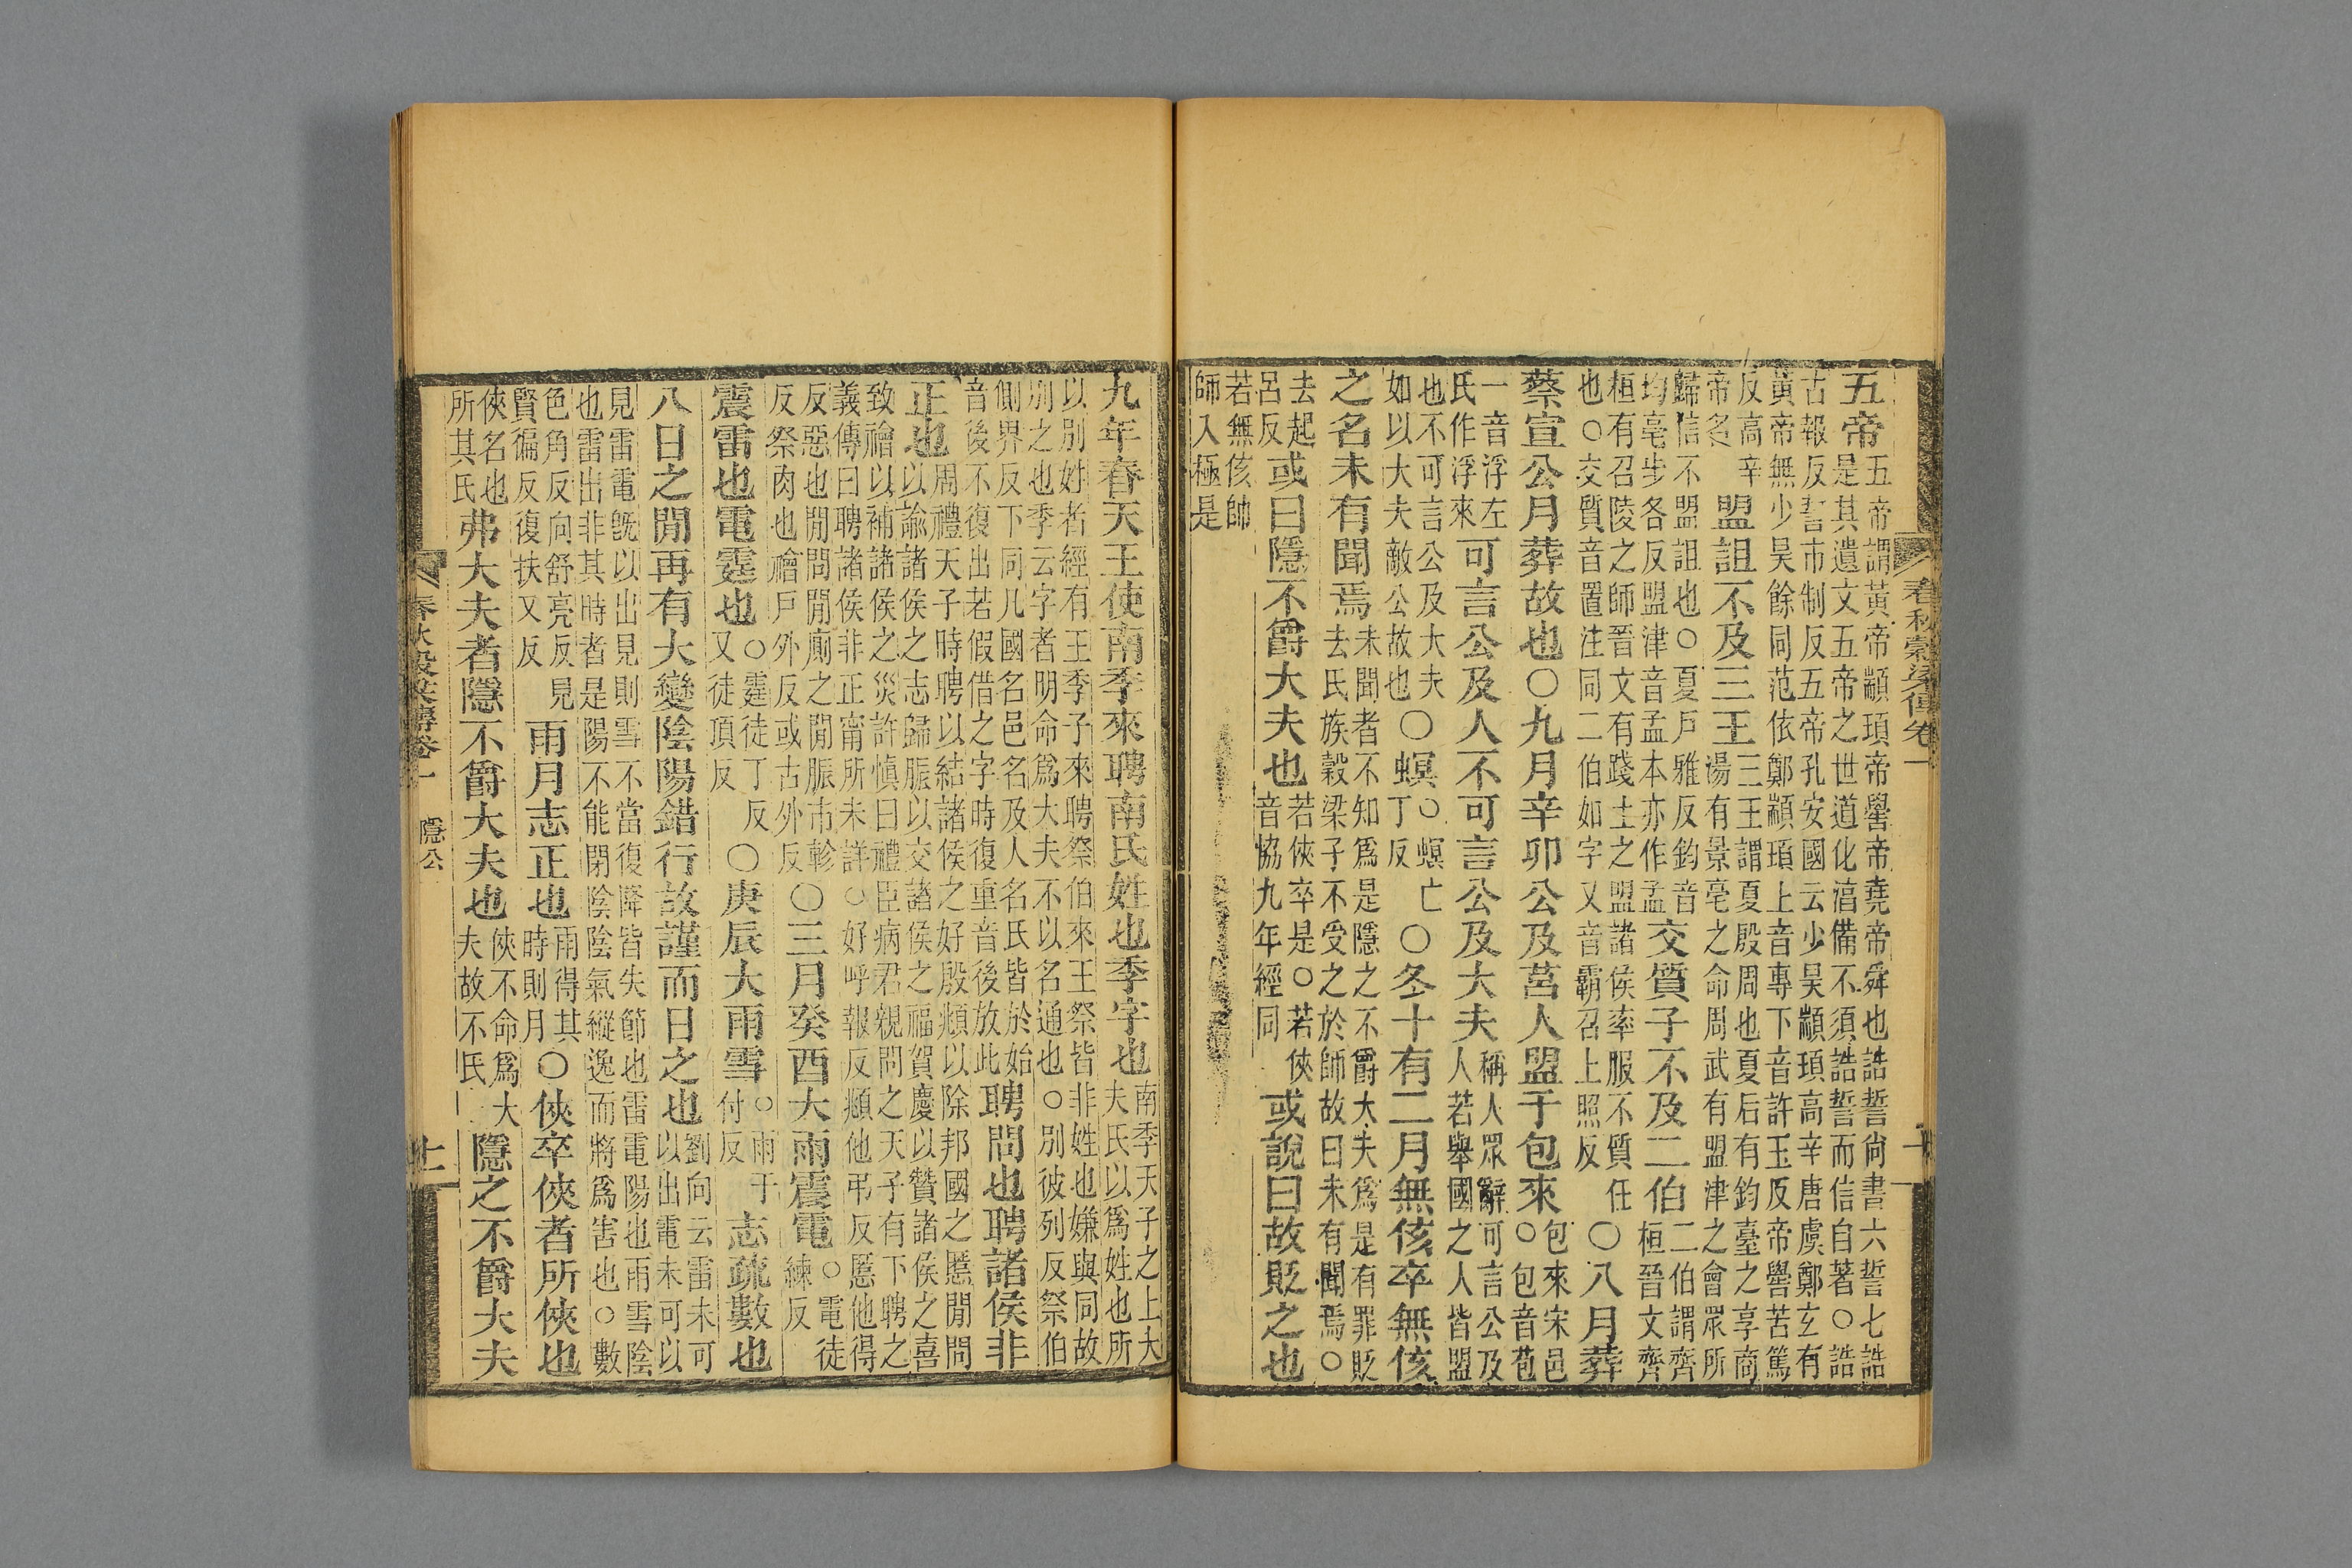 春秋穀梁傳卷一
十
五帝五帝謂黃帝顓頊帝嚳帝堯帝舜也誥誓尙書六誓七誥是其遺文五帝之世道化淳備不須誥誓而信自著○誥
古報反誓市制反五帝孔安國云少昊顓頊高辛唐虞鄭玄有黃帝無少昊餘同范依鄭顓頊上音專下音許玉反帝嚳苦篤
反高辛帝名盟詛不及三王三王謂夏殷周也夏后有鈞臺之享商湯有景亳之命周武有盟津之會眾所
歸信不盟詛也○夏戶雅反鈞音均亳步各反盟津音孟本亦作孟交質子不及二伯二伯謂齊桓晉文齊
桓有召陵之師晉文有踐土之盟諸侯率服不質任也○交質音置注同二伯如字又音霸召上照反○八月葬
蔡宣公月葬故也○九月辛卯公及莒人盟于包來包來宋邑○包音苞
一音浮左氏作浮來可言公及人不可言公及大夫稱人眾辭可言公及人若舉國之人皆盟
也不可言公及大夫如以大夫敵公故也○螟○螟亡丁反○冬十有二月無侅卒無侅
之名未有聞焉未聞者不知爲是隱之不爵大夫爲是有罪貶去氏族穀梁子不受之於師故曰未有聞焉○
去起呂反或曰隱不爵大夫也若俠卒是○若俠音協九年經同或說曰故貶之也
若無侅帥師入極是
九年春天王使南季來聘南氏姓也季字也南季天子之上大夫氏以爲姓也所
以別姓者經有王季子來聘祭伯來王祭皆非姓也嫌與同故別之也季云字者明命爲大夫不以名通也○別彼列反祭伯
側界反下同凡國名邑名及人名氏皆於始音後不復出若假借之字時復重音後放此聘問也聘諸侯非
正也周禮天子時聘以結諸侯之好殷覜以除邦國之慝閒問以諭諸侯之志歸脤以交諸侯之福賀慶以贊諸侯之喜
致禬以補諸侯之災許慎曰禮臣病君親問之天子有下聘之義傳曰聘諸侯非正甯所未詳○好呼報反覜他弔反慝他得
反惡也閒問閒廁之閒脤市軫反祭肉也禬戶外反或古外反○三月癸酉大雨震電○電徒練反
震雷也電霆也○霆徒丁反又徒頂反○庚辰大雨雪○雨于付反志疏數也
八日之閒再有大變陰陽錯行故謹而日之也劉向云雷未可以出電未可以
見雷電旣以出見則雪不當復降皆失節也雷電陽也雨雪陰也雷出非其時者是陽不能閉陰陰氣縱逸而將爲害也○數
色角反向舒亮反見賢徧反復扶又反雨月志正也雨得其時則月○俠卒俠者所俠也
俠名也所其氏弗大夫者隱不爵大夫也俠不命爲大夫故不氏隱之不爵大夫
春秋穀梁傳卷一
隱公
十一